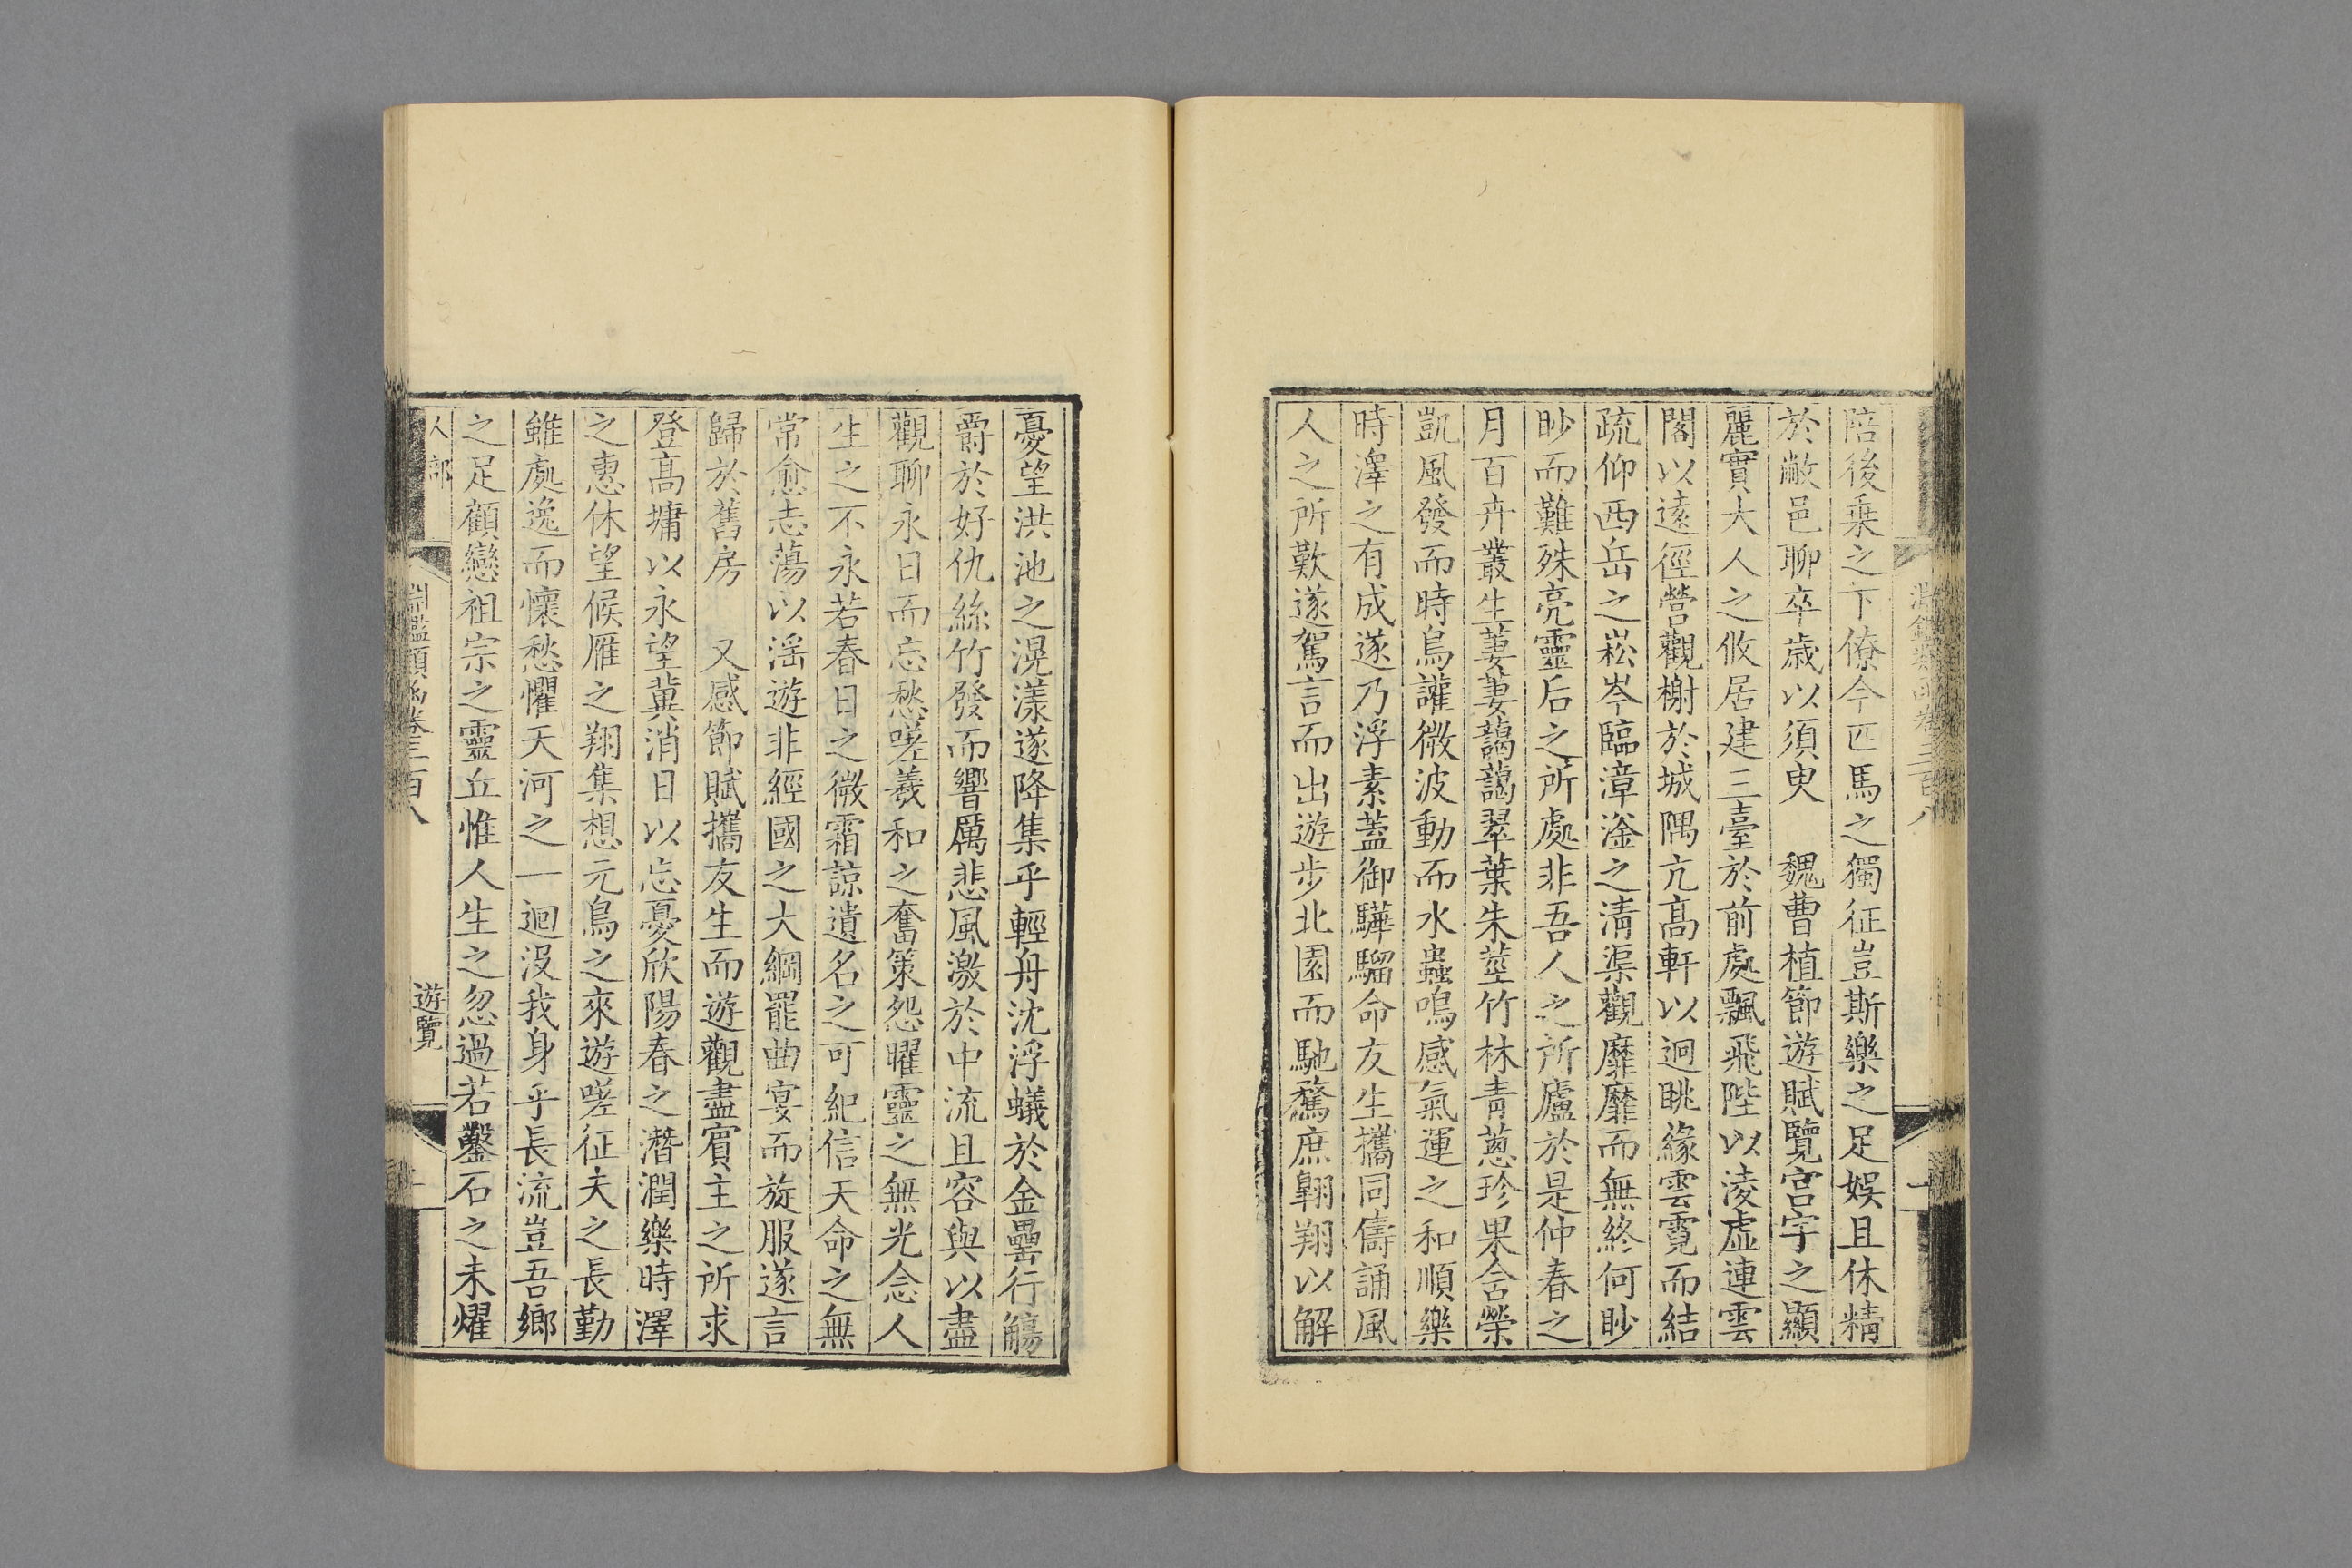 陪後乗之下僚今匹馬之獨征豈斯樂之足娛且休精
於敝邑聊卒歳以須臾　魏曹植節遊賦覽宮宇之顯
麗實大人之攸居建三臺於前處飄飛陛以淩虛連雲
閣以遠徑營觀榭於城隅亢高軒以迥眺緣雲霓而結
疏仰西岳之崧岑臨漳滏之淸渠觀靡靡而無終何眇
眇而難殊亮靈后之所處非吾人之所廬於是仲春之
月百卉叢生萋萋藹藹翠葉朱莖竹林青蔥珍果含榮
凱風發而時鳥讙微波動而水蟲鳴感氣運之和順樂
時澤之有成遂乃浮素蓋御驊騮命友生攜同儔誦風
人之所歎遂駕言而出遊步北園而馳騖庶翺翔以解
憂望洪池之滉漾遂降集乎輕舟沈浮蟻於金罍行觴
爵於好仇絲竹發而響厲悲風激於中流且容與以盡
觀聊永日而忘愁嗟羲和之奮策怨曜靈之無光念人
生之不永若春日之微霜諒遺名之可紀信天命之無
常愈志蕩以淫遊非經國之大綱罷曲宴而旋服遂言
歸於舊房　又感節賦攜友生而遊觀盡賓主之所求
登高墉以永望冀消日以忘憂欣陽春之潛潤樂時澤
之惠休望候雁之翔集想元鳥之來遊嗟征夫之長勤
雖處逸而懷愁懼天河之一迴沒我身乎長流豈吾鄉
之足顧戀祖宗之靈丘惟人生之忽過若鑿石之未燿
人部
淵鑑類函卷三百八
遊覽